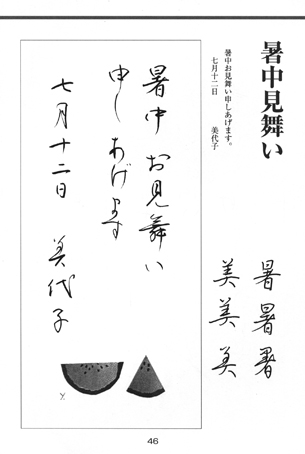 暑中見舞い
暑中お見舞い申しあげます。
七月十二日　美代子
暑暑暑
美美美
暑中お見舞い
申しあげます
七月十二日　美代子
46